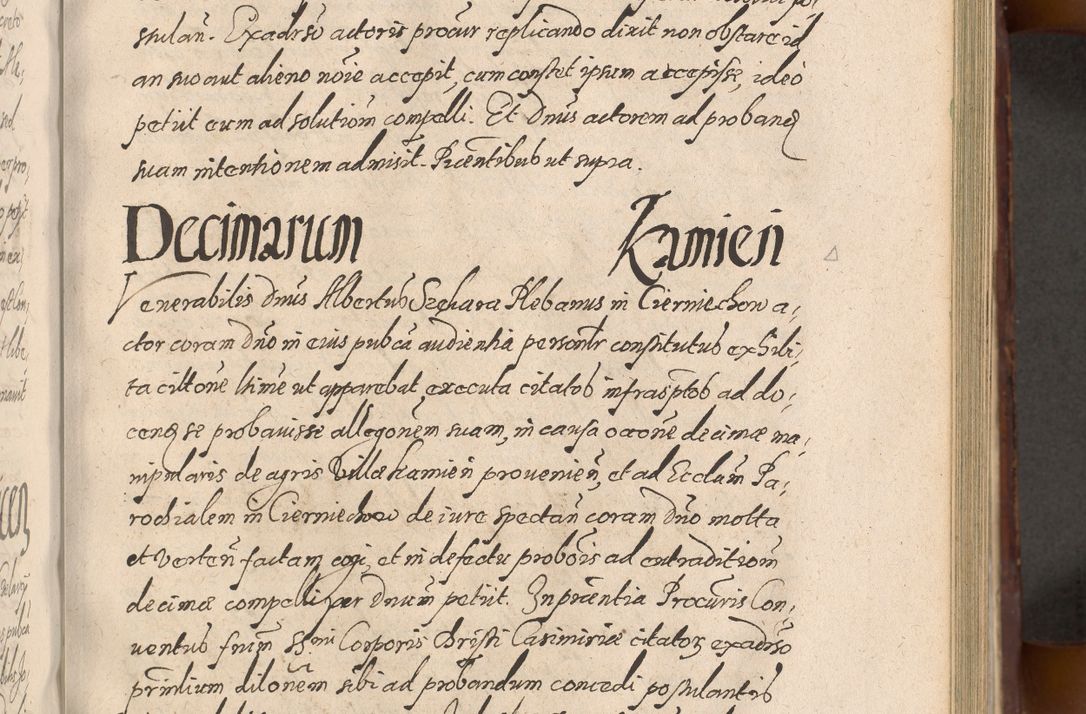 stulan. Exadrso actoris procur replicando dixit non obstare id
an suo aut alieno noie accepit, cum constet ipsum accepisse, ideo
petiit eum ad solutiom compelli. Et Dnus actorem ad proband
suam intentionem admisit. Pscentibub ut supra.
Decimarum Kamień
Venerabilis Dnus Albertus Plebanus in Cierniechow a,
ctor coram Dno in eius pubca audientia personlr constitutus exhibi,
ta cittone ut apparebat executa citatos infrasptos ad do,
cend se probavisse allegonem suam, in causa occone decimæ ma,
nipularis de agris Villæ Kamień provenien, et ad Ecclam Pa,
rochialem in Cierniechow de iure spectan coram Dno motta
et verten factam cogi, et in defectu probois ad extraditiom
decimæ compelli per Dnum petiit. In pscentia Procuris Con,
ventus frum SSmi Corporis Christi Casimiriæ citator exadrso
primlium dilonem sibi ad probandum concedi postulantis